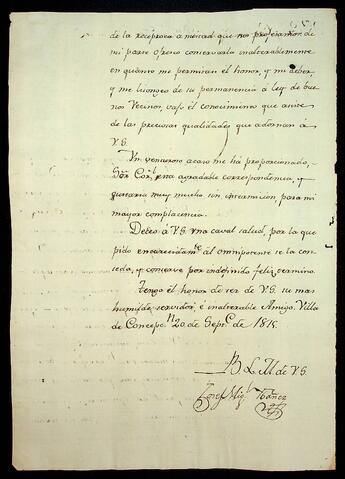 de la reciproca amistad que nos profesamos. de
mi parte ofresco conservarla inalterablemente
en quanto me permitan el honor, y mi deber,
y me lisongeo de su permanencia á ley de bue
nos Vecinos, vajo el conocimiento que asiste
de las preciosas qualidades que adornan á
V.S.
Un venturoso acaso me há proporcionado,
Sõr Cor.l una agradable correspondencia, y
quisiera muy mucho sin intermision, para mi
mayor complacencia.
Deseo á V.S. una caval salud, por la que
pido encarecidam.te al omnipotente se la con
ceda, y conserve por indefinido feliz termino.
Tengo él honor de ser de V.S. su mas
humilde servidor, é inalterable Amigo. Villa
de Concepc.n 20, de Sept.e de 1815.
B. L. M. de V.S.
Josef Mig.l Ibáñez